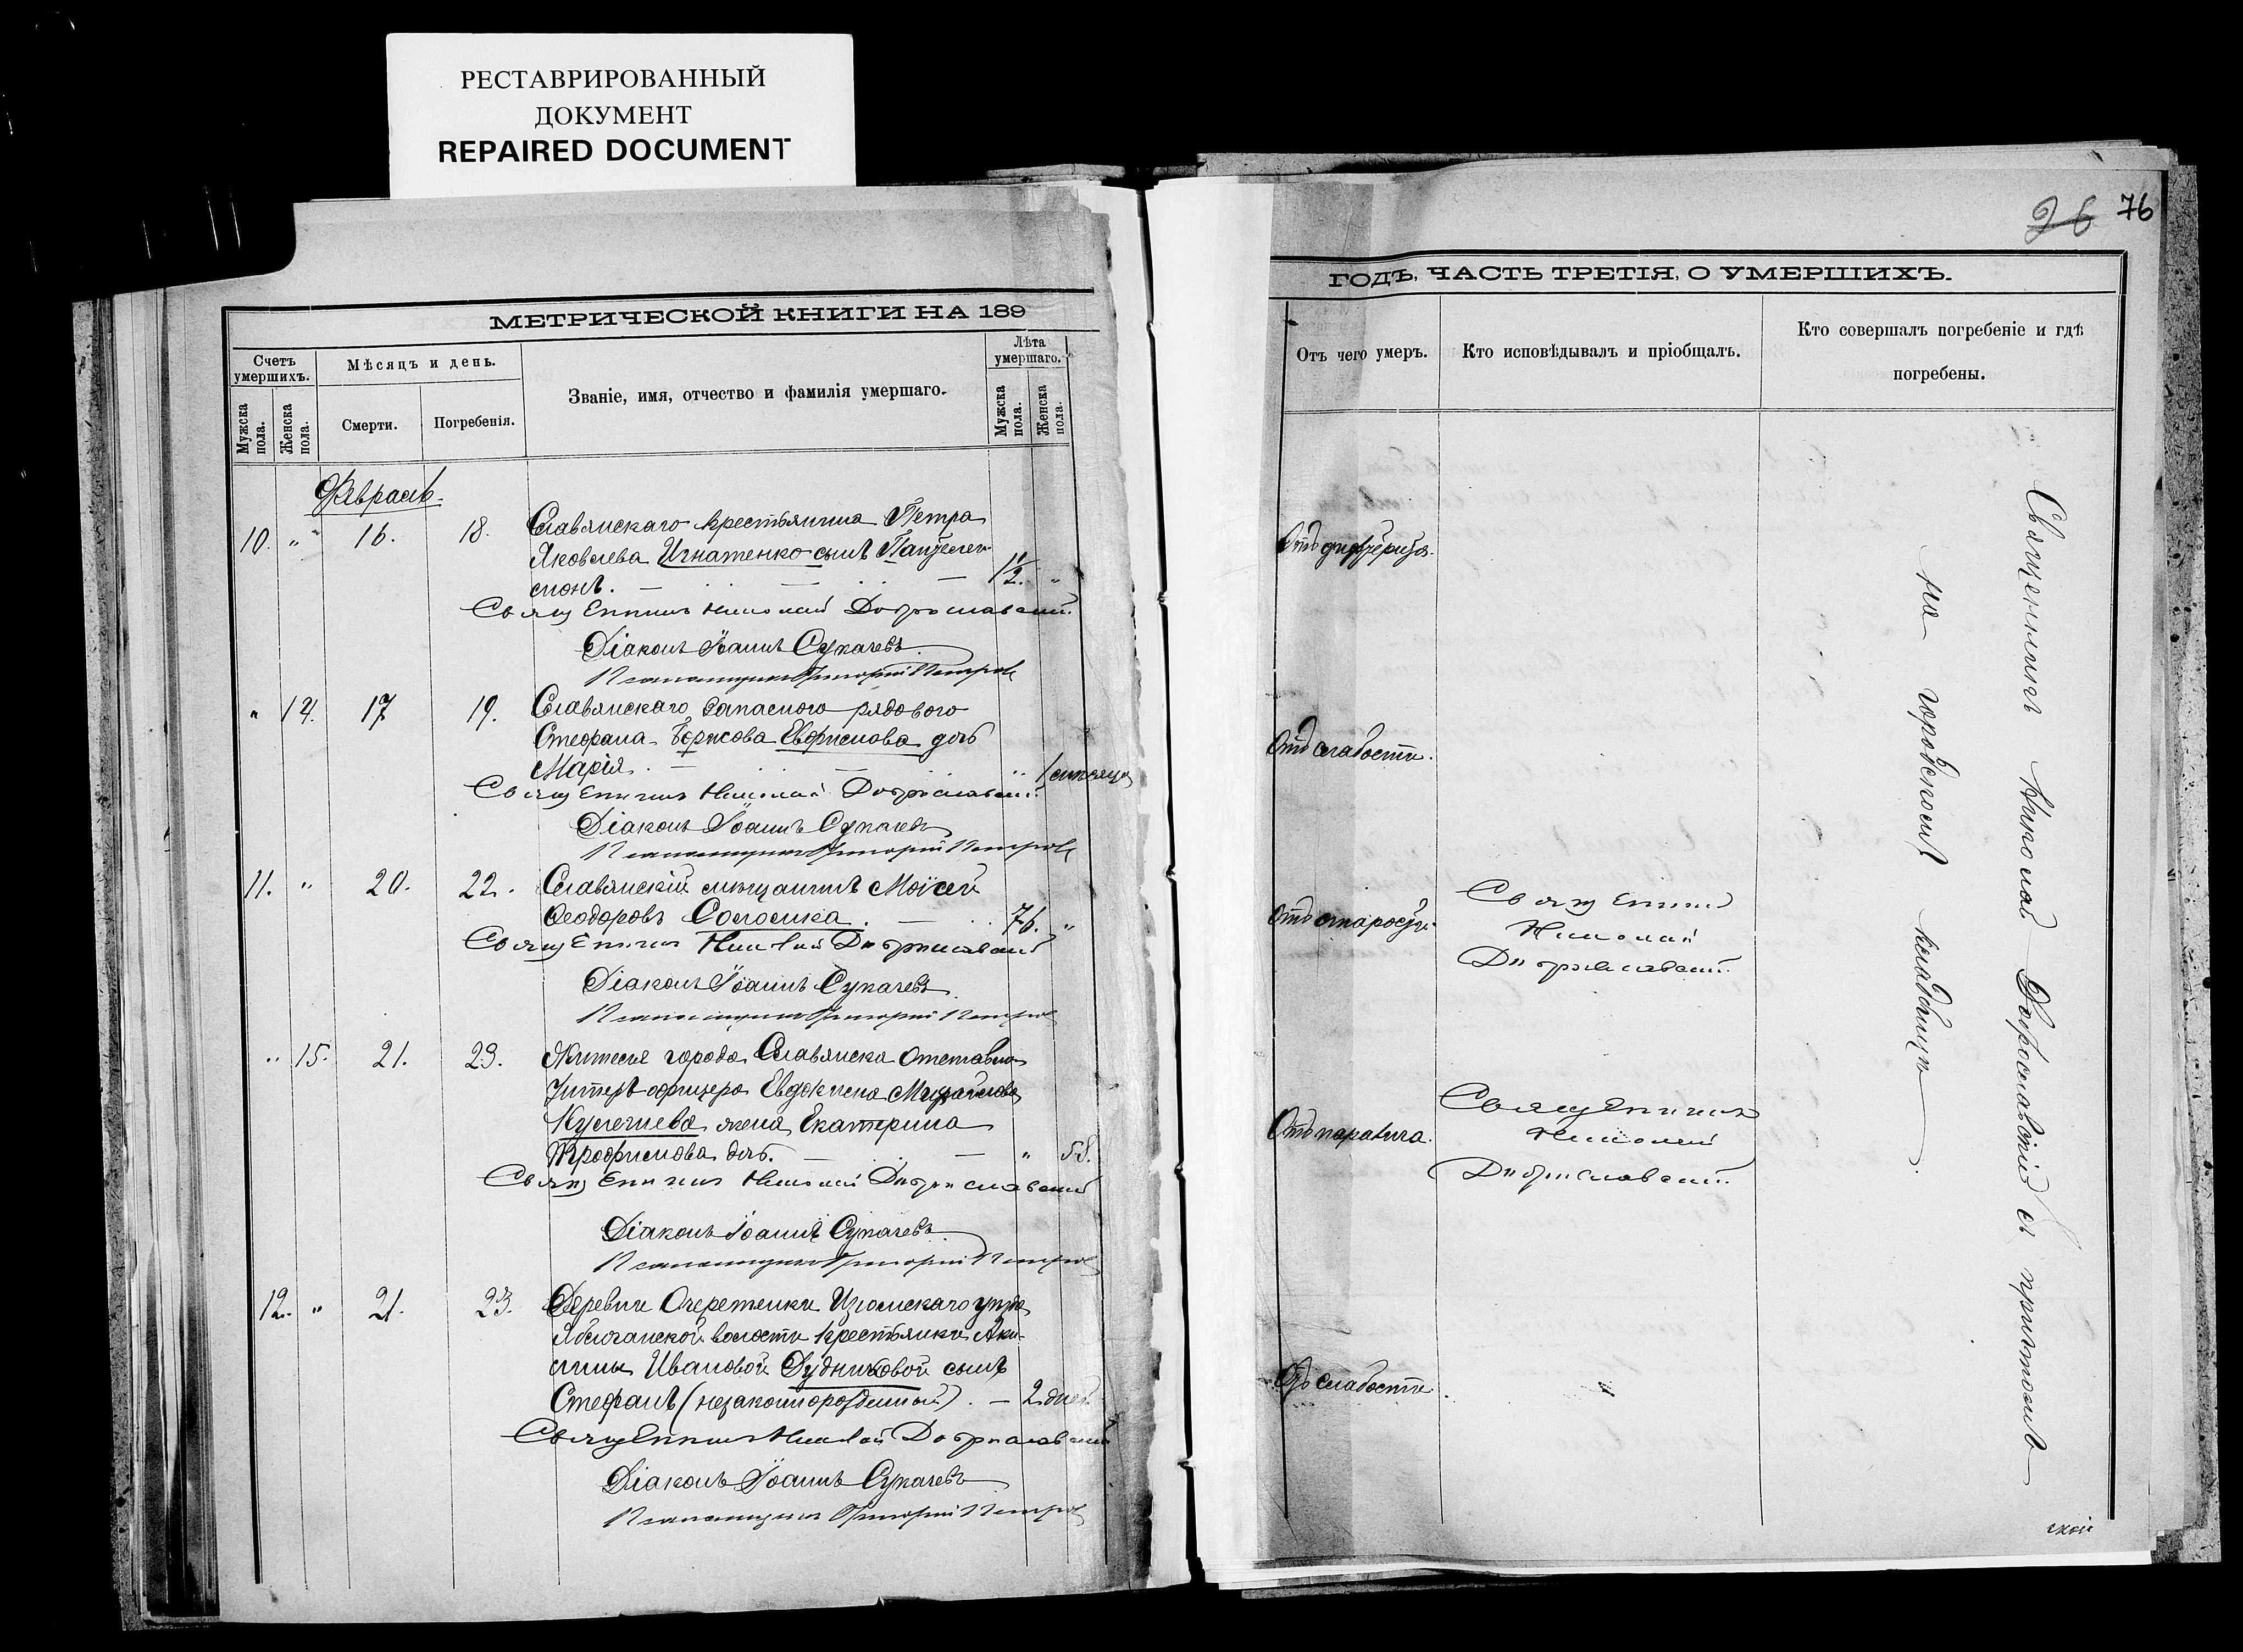 РЕСТАВРИРОВАННЫЙ
ДОКУМЕНТ
REPAIRED DOCUMENT
МЕТРИЧЕСКОЙ КНИГИ НА 189
Счетъ умершихъ.
Мужска пола.
Женска пола.
Мѣсяцъ и день.
Смерти.
Погребенія.
Званіе, имя, отчество и фамилія умершаго.
Лѣта умершаго.
Мужска пола.
Женска пола.
Февраль.
10. " 16. 18. Славянскаго крестьянина Петра
Яковлева Игнатенко сынъ Пантелей-
монъ. — 1½. "
Священникъ Николай Доброславскій.
Діаконъ Іоаннъ Сукачевъ
Псаломщикъ Григорій Петровъ
" 14. 17 19. Славянскаго запаснаго рядового
Стефана Борисова Ефримова дочь
Марія. — " 1 мѣсяца
Священникъ Николай Доброславскій.
Діаконъ Іоаннъ Сукачевъ
Псаломщикъ Григорій Петровъ
11. " 20. 22. Славянскій мѣщанинъ Моѵсей
Ѳеодоровъ Соломка. — 76. "
Священникъ Николай Доброславскій
Діаконъ Іоаннъ Сукачевъ
Псаломщикъ Григорій Петровъ
" 15. 21. 23. Жителя города Славянска отставно
Унтеръ-офицера Евдокима Михайлова
жена Екатерина
Трофимова дочь. — " 58.
Священникъ Николай Доброславскій
Діаконъ Іоаннъ Сукачевъ
Псаломщикъ Григорій Петровъ
12. " 21. 23. Деревни Очеретенки Изюмскаго уѣзда
волости крестьянки Аки-
лины Ивановой Дудниковой сынъ
Стефанъ (незаконнорожденный). — 2 дней
Священникъ Николай Доброславскій
Діаконъ Іоаннъ Сукачевъ
Псаломщикъ Григорій Петровъ
26 76
ГОДЪ, ЧАСТЬ ТРЕТІЯ, О УМЕРШИХЪ.
Отъ чего умеръ.
Кто исповѣдывалъ и пріобщалъ.
Кто совершалъ погребеніе и гдѣ
погребены.
Отъ дифтерита.
Отъ слабости.
Отъ старости.
Священникъ
Николай
Доброславскій.
Отъ паралича.
Священникъ
Николай
Доброславскій.
Отъ слабости. "
Священникъ Николай Доброславскій съ причтомъ
на городскомъ кладбищѣ
ской